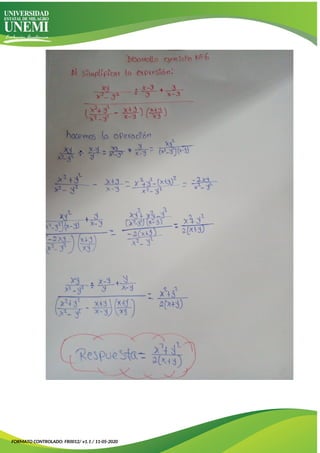 UNIVERSIDAD
ESTATAL DE MILAGRO
UNEMI
Desarrollo ejercicio Nº6
Al simplificar la expresión:
xy/(x²-y²) ÷ (x-y)/y + y/(x-y)
((x²+y²)/(x²-y²) - (x+y)/(x-y)) ((x+y)/xy)
hacemos la operación
xy/(x²-y²) ÷ (x-y)/y = xy/(x²-y²) * y/(x-y) = xy²/((x²-y²)(x-y))
(x²+y²)/(x²-y²) - (x+y)/(x-y) = (x²+y²-(x+y)²)/(x²-y²) = -2xy/(x²-y²)
= x²+y²/2(x+y)
xy/(x²-y²) ÷ (x-y)/y + y/(x-y)
((x²+y²)/(x²-y²) - (x+y)/(x-y)) ((x+y)/xy) = x²+y²/2(x+y)
Respuesta = x²+y²/2(x+y)
FORMATO CONTROLADO: FR0012/ v1.1 / 11-05-2020